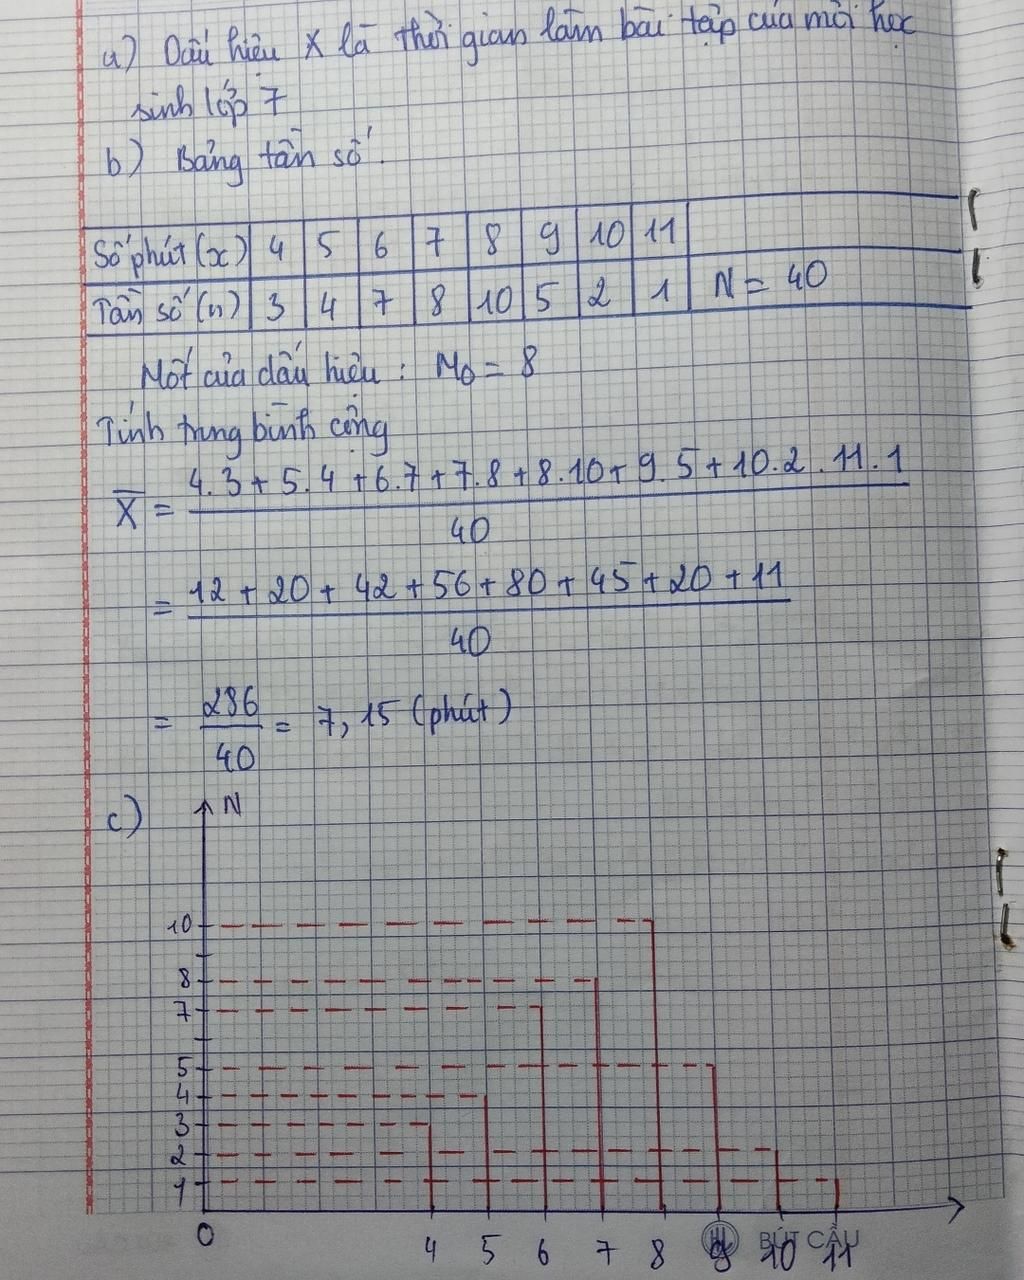 a) Dấu hiệu X là thời gian làm bài tập của mỗi học
sinh lớp 7
b) Bảng tần số.
Số phút (x) 4 5 6 7 8 9 10 11
Tần số (n) 3 4 7 8 10 5 2 1 N = 40
Mốt của dấu hiệu : M₀ = 8
Tính trung bình cộng
X̄ = 4.3 + 5.4 + 6.7 + 7.8 + 8.10 + 9.5 + 10.2 . 11.1
40
= 12 + 20 + 42 + 56 + 80 + 45 + 20 + 11
40
= 286
40
= 7,15 (phút)
c) N
10
8
7
5
4
3
2
1
0 4 5 6 7 8 9 10 11
BÚT CẦU